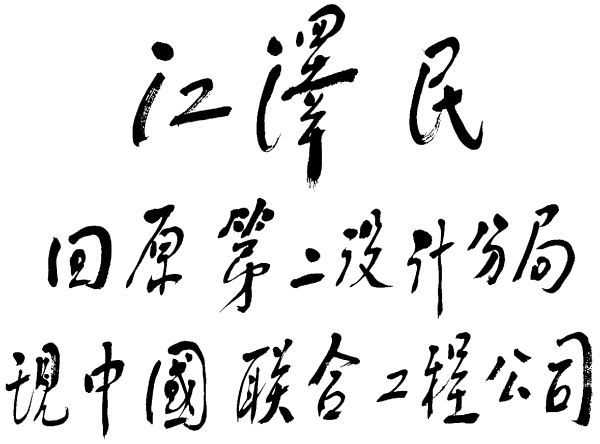 江澤民
回原第二設计分局
現中國联合工程公司